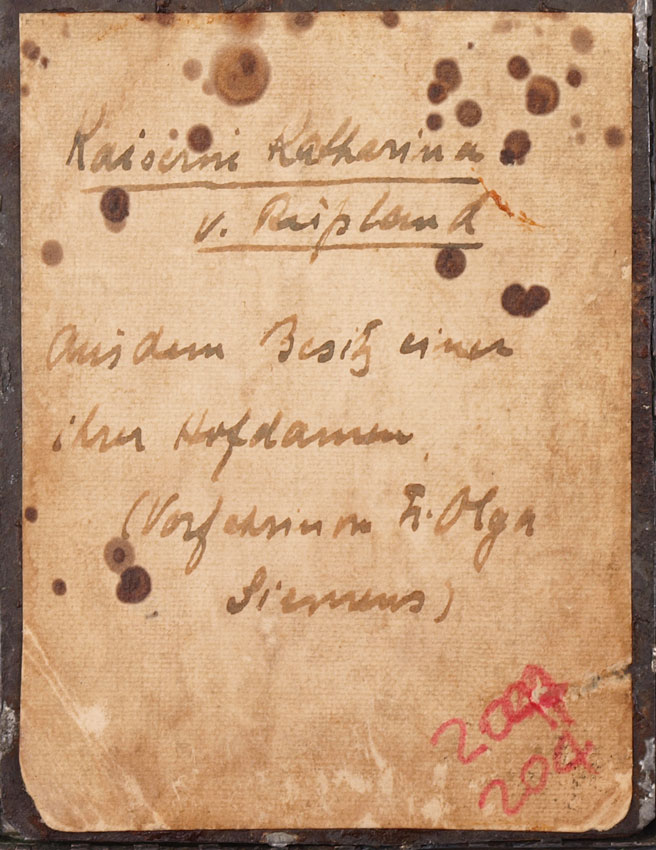 Kaiserin Katharina
v. Rußland
Aus dem Besitz einer
ihrer Hofdamen
(Vorfahrin von Fr. Olga
Siemens)
204